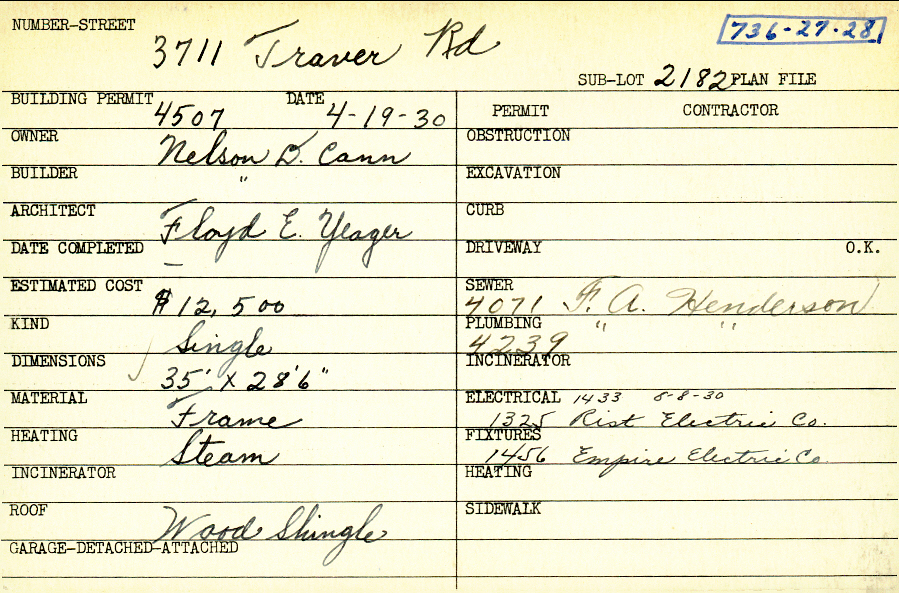 NUMBER-STREET 3711 Traver Rd 736-27-28
SUB-LOT 2182 PLAN FILE
BUILDING PERMIT 4507 DATE 4-19-30
PERMIT CONTRACTOR
OWNER Nelson D. Cann
OBSTRUCTION
BUILDER "
EXCAVATION
ARCHITECT Floyd E. Yeager
CURB
DATE COMPLETED —
DRIVEWAY O.K.
ESTIMATED COST $12,500
SEWER 4071 F. A. Henderson
KIND Single
PLUMBING 4239 " "
DIMENSIONS 35' x 28'6"
INCINERATOR
MATERIAL Frame
ELECTRICAL 1433 8-8-30
1325 Rist Electric Co.
HEATING Steam
FIXTURES 1456 Empire Electric Co.
INCINERATOR
HEATING
ROOF Wood Shingle
SIDEWALK
GARAGE-DETACHED-ATTACHED